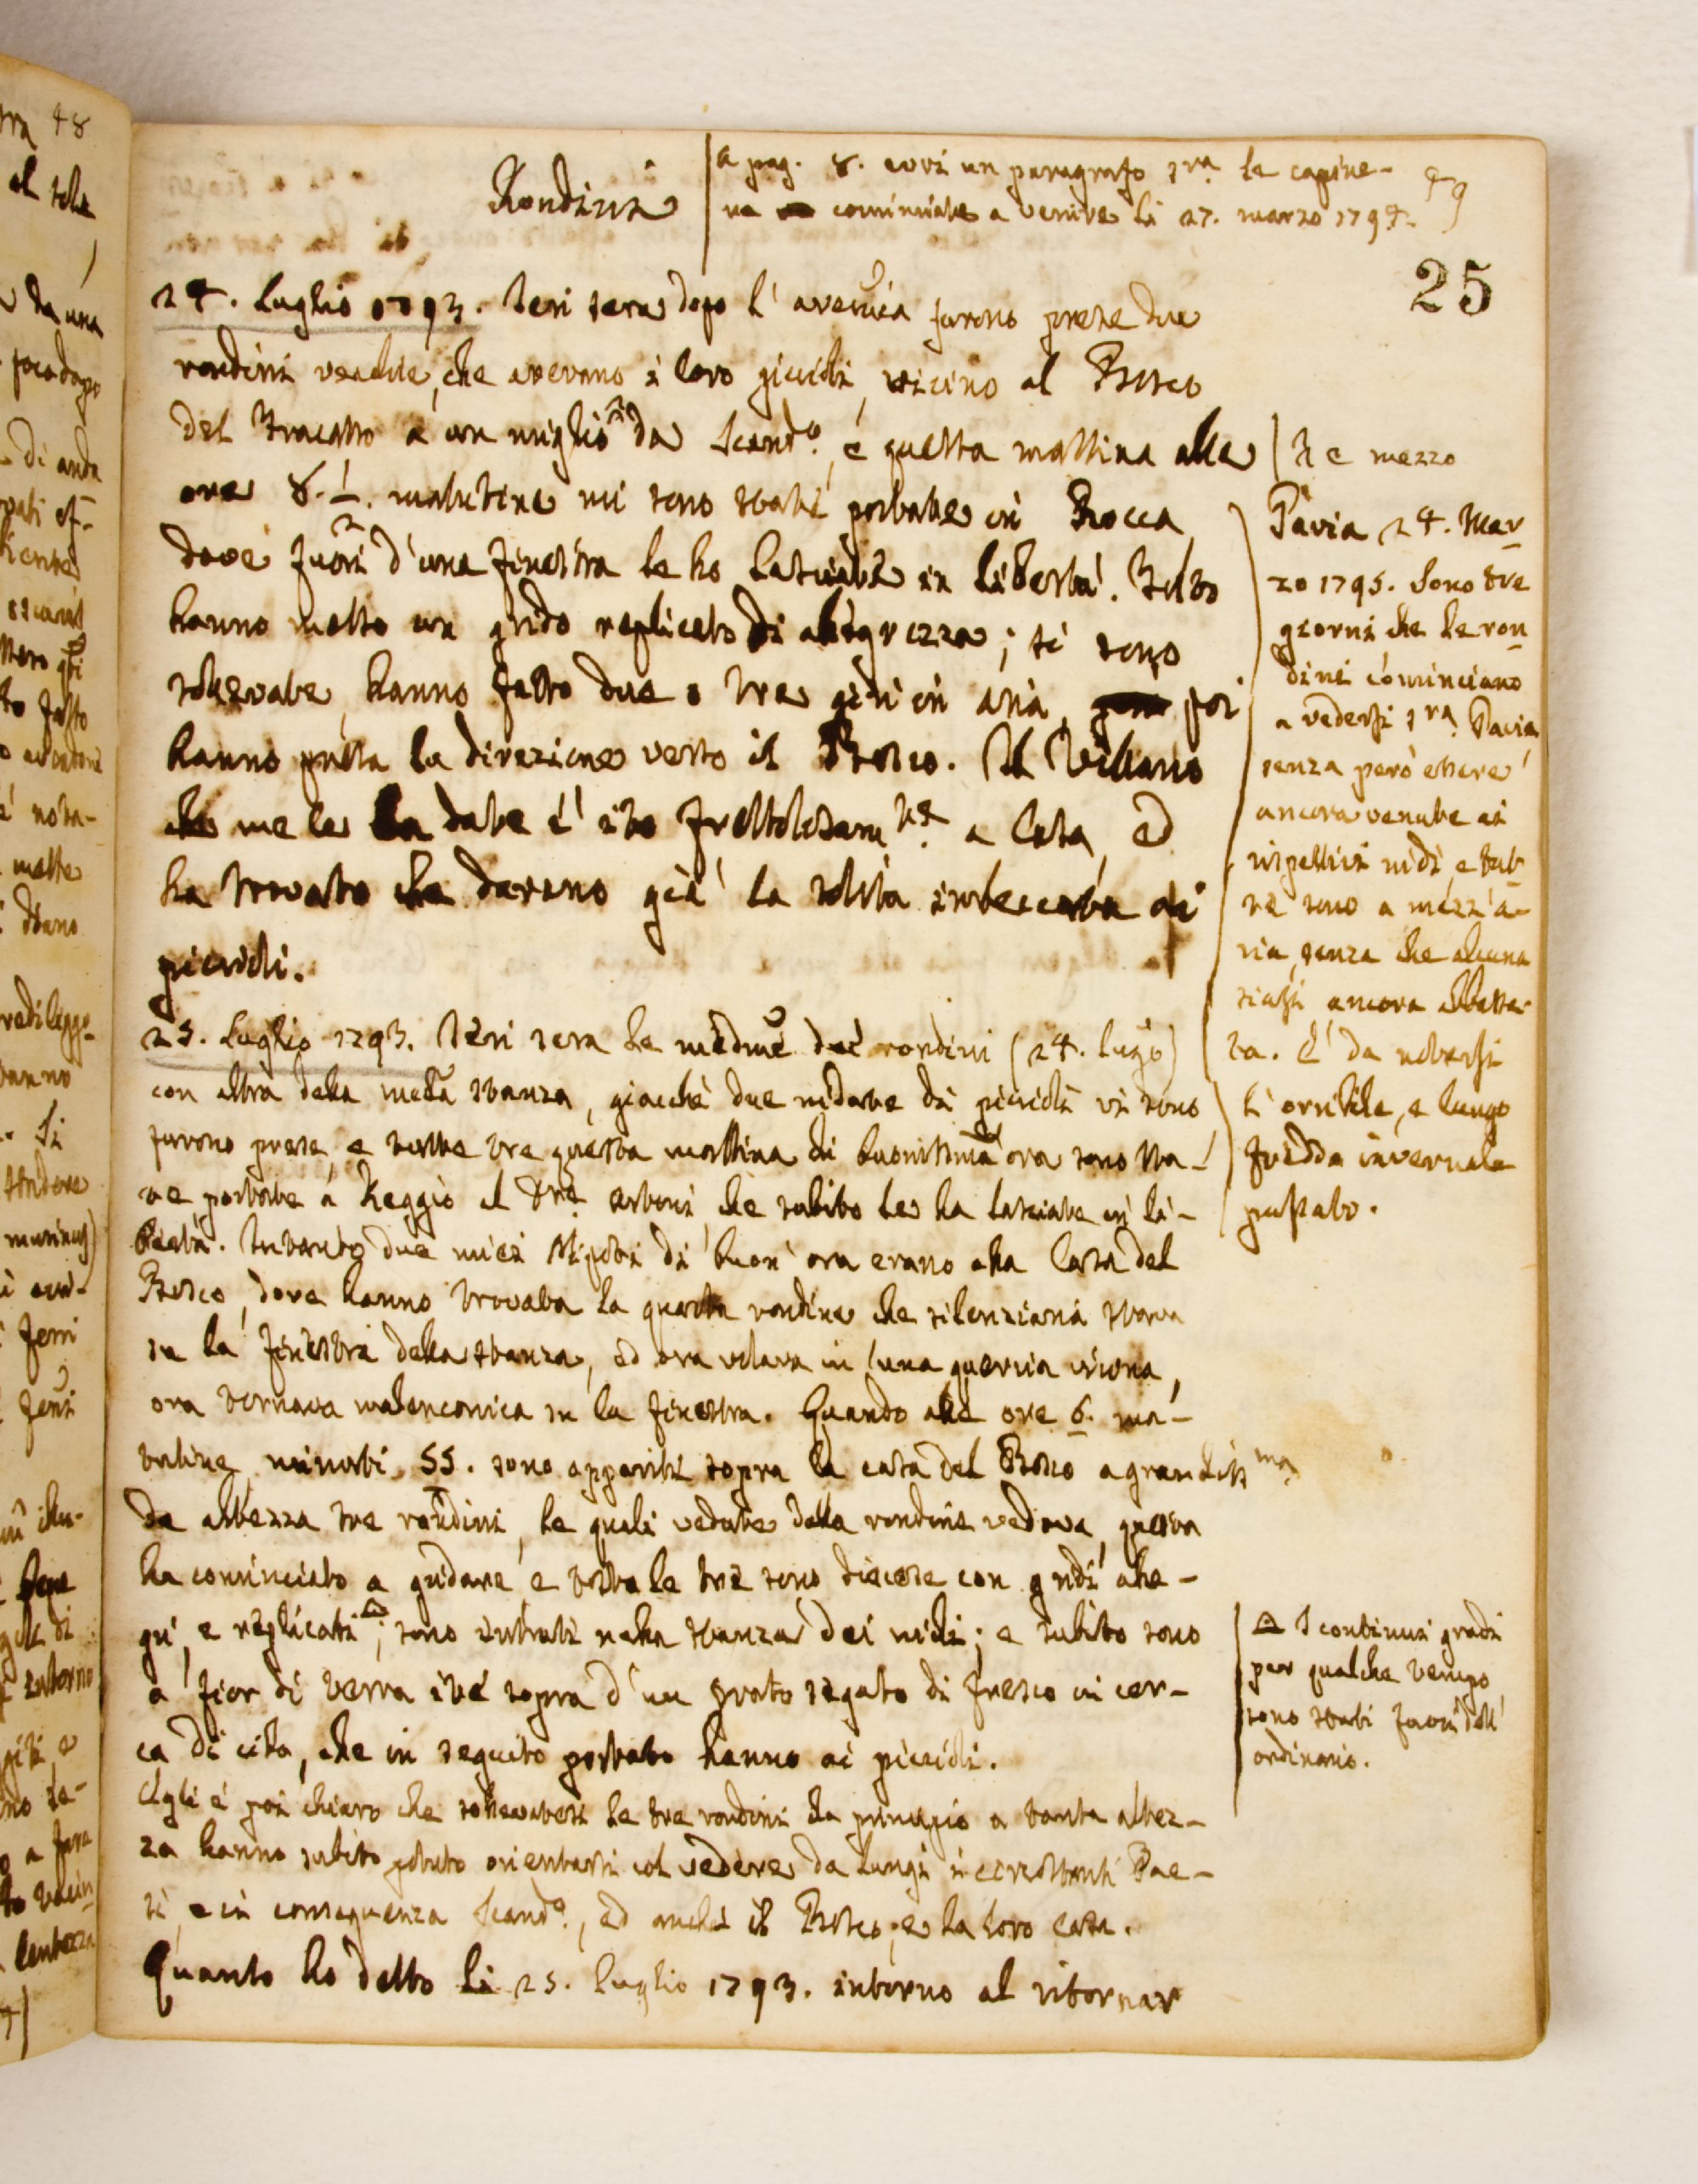 Rondini
a pag. 8. evvi un paragrafo sra. le capine-
ne cominciate a venire li 27. marzo 1794.
49
25
24. Luglio 1793. Ieri sera dopo l' avemia furono prese due
rondini vecchie, che avevano i loro piccioli, vicino al Bosco
del Fracasso a un miglio da Scando., e questa mattina alle
ore 8. 1/2. matutine mi sono state portate in Rocca,
dove fuori d'una finestra le ho lasciate in libertà. Subito
hanno messo un grido replicato di allegrezza; si sono
sollevate, hanno fatto due o tre giri in aria, poi
hanno presa la direzione verso il Bosco. Il Villano
che me le ha date è ito frettolosamte. a Casa, ed
ha trovato che davano già la solita imbeccata ai
piccioli.
25. Luglio 1793. Ieri sera le medme due rondini (24. Lugo)
con altra della meda stanza, giacchè due nidate di piccioli vi sono,
furono prese, e tutte tre questa mattina di buonissima ora sono sta-
te portate a Reggio al Dre. che subito le ha lasciate in li-
bertà. Intanto due miei Nipoti di buon' ora erano alla Casa del
Bosco, dove hanno trovata la quarta rondine che silenziaria stava
su la finestra della stanza, ed ora volava in una quercia vicina,
ora tornava malenconica su la finestra. Quando alle ore 6. ma-
tutine, minuti 55. sono apparite sopra la casa del Bosco a grandissma.
da altezza tre rondini, le quali vedute dalla rondine vedova, questa
ha cominciato a gridare e tosto le tre sono discese con gridi alle-
gri, e replicati; sono entrate nella stanza dei nidi; e subito sono
a fior di terra ite sopra d'un prato segato di fresco in cer-
ca di cibo, che in seguito portato hanno ai piccioli.
Egli è poi chiaro che sollevatesi le tre rondini da principio a tanta altez-
za hanno subito potuto orientarsi col vedere da lungi i circostanti Pae-
si, e in conseguenza Scando., ed anche il Bosco, e la loro casa.
Quanto ho detto li 25. Luglio 1793. intorno al ritornar
e mezzo
Pavia 24. Mar
zo 1795. Sono tre
giorni che le ron
dini cominciano
a vedersi sra. Pavia
senza però essere
ancora venute ai
rispettivi nidi, e tut
te sono a mezz'a-
ria, senza che alcuna
siasi ancora abbassa-
ta. È da notarsi
l' orribile, e lungo
freddo invernale
passato.
I continui gridi
per qualche tempo
sono stati fuori dell'
ordinario.